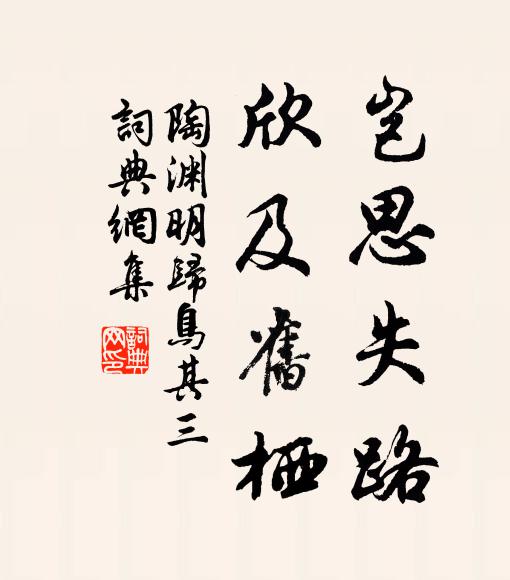 豈思失路
欣及舊栖
陶渊明歸鳥其三
詞典網集
詞典网印